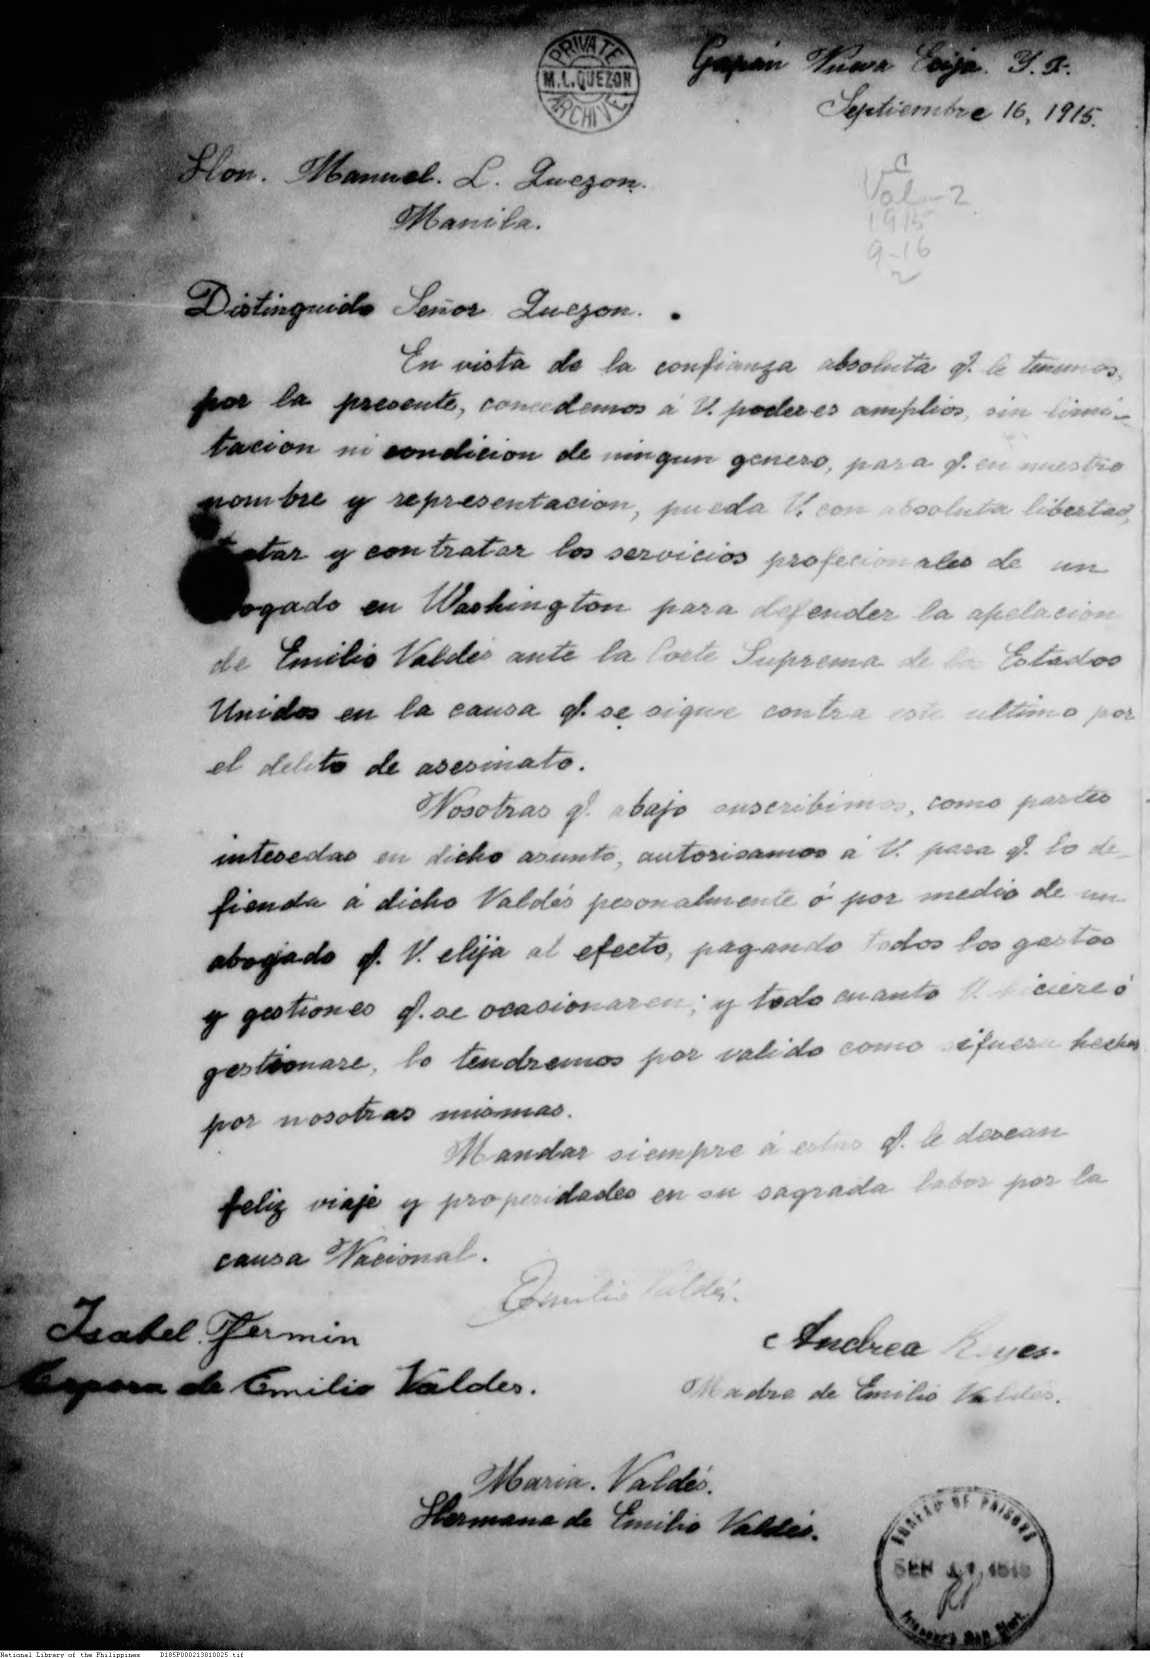 PRIVATE
M.L. QUEZON
ARCHIVE
Gapán Nueva Ecija. I. F.
Septiembre 16, 1915.
Hon. Manuel. L. Quezon.
Manila.
C
Val-2
1915
9-16
2
Distinguido Señor Quezon.
En vista de la confianza absoluta q. le tenemos,
por la presente, concedemos á V. poderes amplios, sin limi-
tacion ni condicion de ningun genero, para q. en nuestro
nombre y representacion, pueda V. con absoluta libertad,
tratar y contratar los servicios profecionales de un
ogado en Washington para defender la apelacion
de Emilio Valdés ante la Corte Suprema de los Estados
Unidos en la causa q. se sigue contra este ultimo por
el delito de asesinato.
Nosotras q. abajo suscribimos, como partes
interedas en dicho asunto, autorisamos á V. para q. lo de-
fienda á dicho Valdés pesonalmente ó por medio de un
abogado q. V. elija al efecto, pagando todos los gastos
y gestiones q. se ocasionaren; y todo cuanto V. hiciere ó
gestionare, lo tendremos por valido como si fuera hechos
por nosotras mismas.
Mandar siempre á estas q. le desean
feliz viaje y properidades en su sagrada labor por la
causa Nacional.
Emilio Valdés.
Isabel Fermin
Esposa de Emilio Valdes.
Andrea Reyes.
Madre de Emilio Valdés.
Maria. Valdés.
Hermana de Emilio Valdés.
BUREAU OF PRISONS
SEP 1915
National Library of the Philippines D185P000213810025.tif